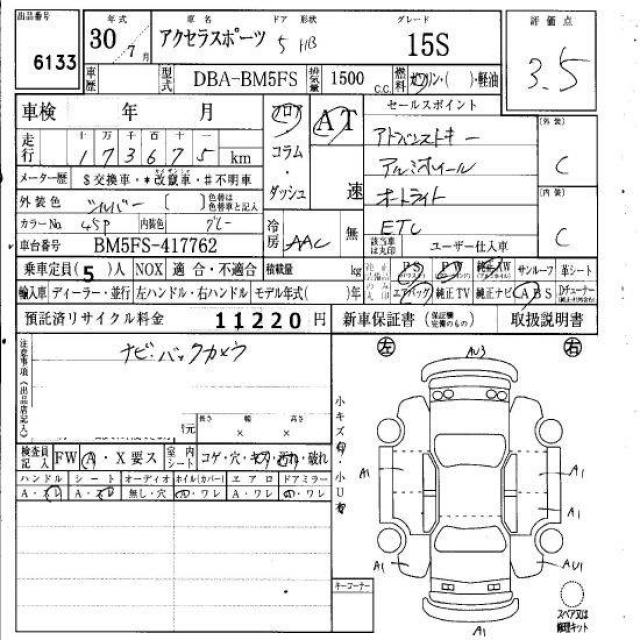 出品番号 年式 車名 ドア 形状 グレード 評価点
6133 30年 7月 アクセラスポーツ 5 HB 15S 3.5
車歴 型式 DBA-BM5FS 排気量 1500 c.c. 燃料 ガソリン・( )・軽油
車検 年 月 フロア AT セールスポイント
走行 十 万 千 百 十 一 コラム アドバンストキー (外装)
1 7 3 6 7 5 km ・ダッシュ 速 アルミホイール C
メーター歴 $交換車・*改竄車・#不明車 オートライト (内装)
外装色 シルバー [ ] 色替は色替車名と記入 冷房 AAC 無 ETC C
カラーNo 45P 内装色 グレー
車台番号 BM5FS-417762 該当車は丸印 ユーザー仕入車
乗車定員(5)人 NOX 適合・不適合 積載量 kg PS PW 純正AW サンルーフ 革シート
輸入車 ディーラー・並行 左ハンドル・右ハンドル モデル年式( )年 エアバッグ 純正TV 純正ナビ ABS Dチューナー
預託済リサイクル料金 11220円 新車保証書 (保証継 完備のもの) 取扱説明書
注意事項(出品店記入) ナビ・バックカメラ 左 右
元 長さ 幅 高さ
× ×
検査員記入 FW A・X要ス 室内シート コゲ・穴・キズ・汚れ・破れ
ハンドル シート オーディオ ホイル(カバー) エアロ ドアミラー
A・スレ A・スレ 無し・穴 A・ワレ A・ワレ A・ワレ
小キズ有・小U有
AU3
A1 A1
A1
A1 AU1
A1
キーコーナー
スペア又は修理キット